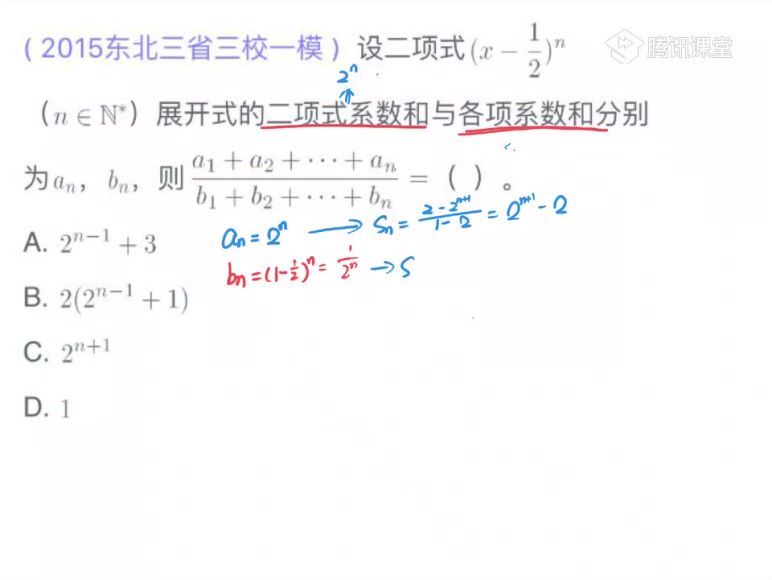 （2015东北三省三校一模）设二项式(x − 1/2)^n
腾讯课堂
2^n
（n ∈ ℕ*）展开式的二项式系数和与各项系数和分别
为a_n，b_n，则 (a_1 + a_2 + ⋯ + a_n)/(b_1 + b_2 + ⋯ + b_n) =（ ）。
A. 2^{n−1} + 3
a_n = 2^n → S_n = (2 − 2^{n+1})/(1 − 2) = 2^{n+1} − 2
b_n = (1 − 1/2)^n = 1/2^n → S
B. 2(2^{n−1} + 1)
C. 2^{n+1}
D. 1